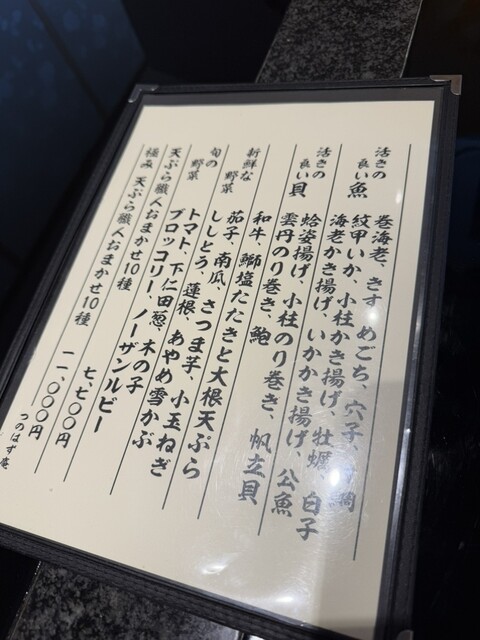 活きの良い魚
巻海老、きす、めごち、穴子、
紋甲いか、小柱かき揚げ、牡蠣、白子
海老かき揚げ、いかかき揚げ、公魚
活きの良い貝
蛤姿揚げ、小柱のり巻き、帆立貝
雲丹のり巻き、鮑
新鮮な野菜
和牛、鰤塩たたきと大根天ぷら
旬の野菜
茄子、南瓜、さつま芋、小玉ねぎ
ししとう、蓮根、あやめ雪かぶ
トマト、下仁田葱、木の子
ブロッコリー、ノーザンルビー
天ぷら職人おまかせ10種 七、七〇〇円
極み 天ぷら職人おまかせ10種 一一、〇〇〇円
つのはず庵